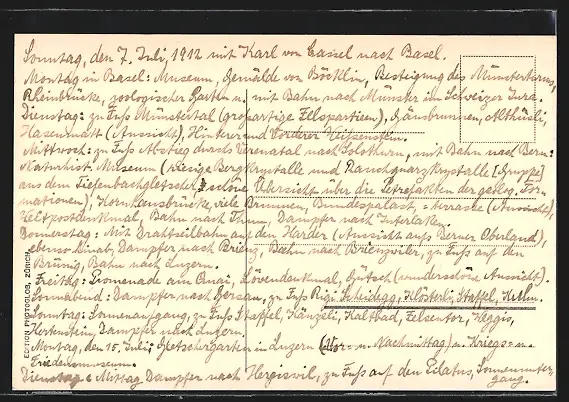 Sonntag, den 7. Juli, 1912 mit Karl von Cassel nach Basel.
Montag in Basel: Museum, Gemälde von Böcklin, Besteigung des Münsterturms,
Rheinbrücke, zoologischer Garten u. mit Bahn nach Münster im Schweizer Jura.
Dienstag: zu Fuß Münstertal (großpartier Felspartien), Gänsbrunnen, Althüsli,
Hasenmatt (Aussicht), Hinterer und Vorderer Weißenstein.
Mittwoch: zu Fuß Abstieg durch Verenatal nach Solothurn, mit Bahn nach Bern:
Naturhist. Museum (riesige Bergkrystalle und Rauchquarzkrystalle [Gruppe]
aus dem Tiefenbachgletscher, schöne Übersicht über die Petrefakten der geolog. For-
mationen), Kornhausbrücke, viele Brunnen, Bundespalast, =terrasse (Aussicht),
Weltpostdenkmal, Bahn nach Thun, Dampfer nach Interlaken.
Donnerstag: Mit Drahtseilbahn auf den Harder (Aussicht aufs Berner Oberland),
ebenso hinab, Dampfer nach Brienz, Bahn nach Brienzwiler, zu Fuß auf den
Brünig, Bahn nach Luzern.
Freitag: Promenade am Quai, Löwendenkmal, Gütsch (wunderschöne Aussicht).
Sonnabend: Dampfer nach Gersau, zu Fuß Rigi Scheidegg, Klösterli, Staffel, Kulm.
Sonntag: Sonnenaufgang, zu Fuß Staffel, Känzeli, Kaltbad, Felsentor, Weggis,
Hertenstein, Dampfer nach Luzern.
Montag, den 15. Juli: Gletschergarten in Luzern (Vor= u. Nachmittag) u. Kriegs= u.
Friedensmuseum.
Dienstag: Mittag Dampfer nach Hergiswil, zu Fuß auf den Pilatus, Sonnenunter-
gang.
EDITION PHOTOGLOB, ZÜRICH